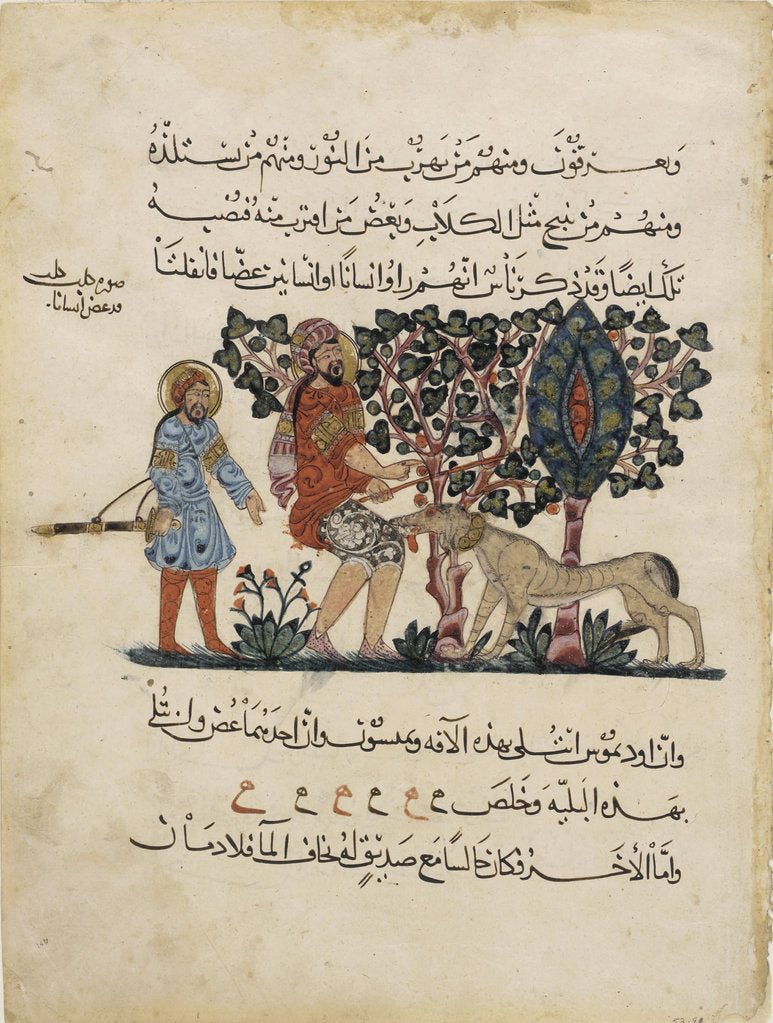 ويعرقون ومنهم من يهرب من النور ومنهم من يستلذه
ومنهم من ينبح مثل الكلاب ويعض من اقترب منه فتصيبه
تلك ايضا وقد ذكر ناس انهم راوا انسانا او انسانين عضا فانفلتا
صورة كلب كلب
قد عض انسانا
وان اوديموس ابتلى بهذه الآفه وان احدهما عض وابتلى
بهذه البليه وخلص
واما الاخر فكان جالسا مع صديق له يخاف الما فلا دمان